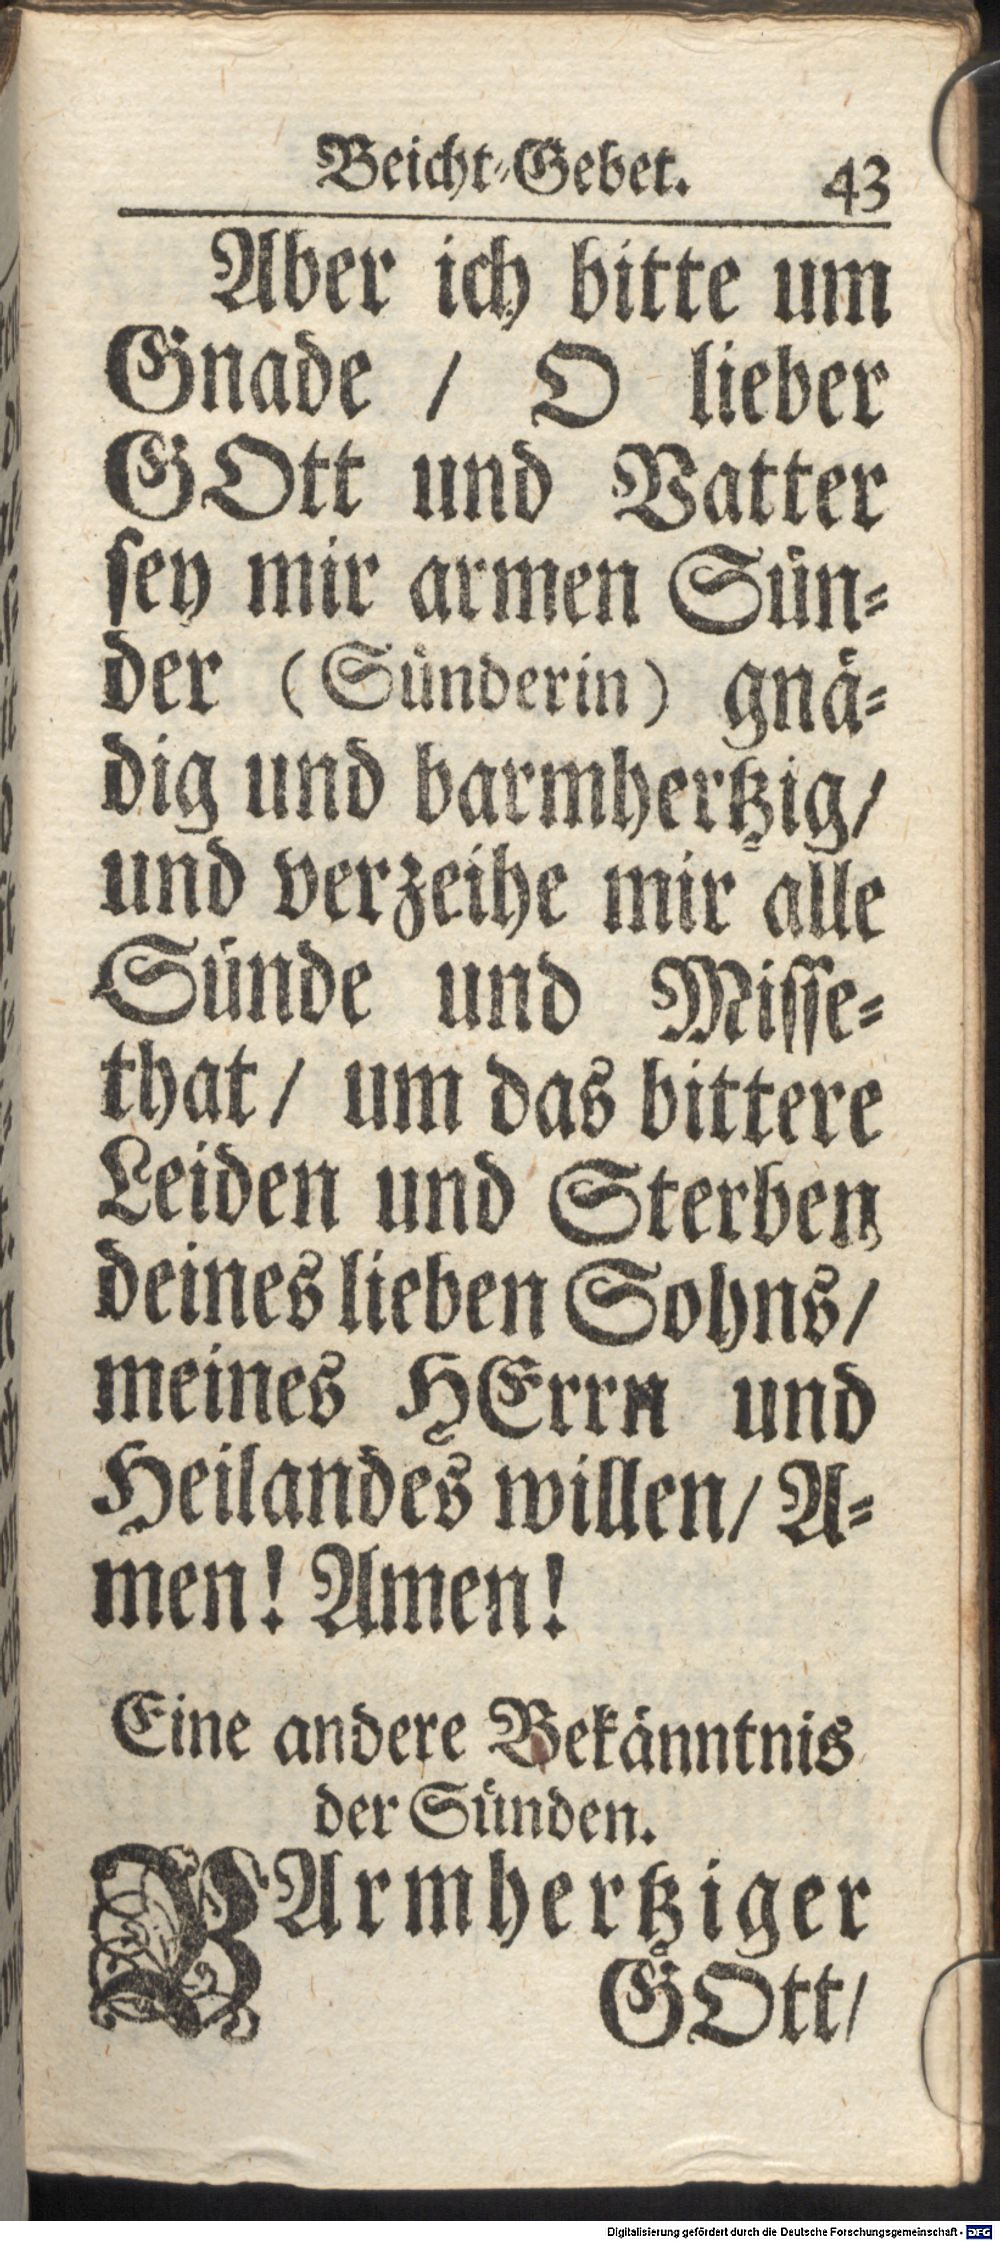 Beicht-Gebet. 43
Aber ich bitte um
Gnade / O lieber
GOtt und Vatter
sey mir armen Sün-
der (Sünderin) gnä-
dig und barmhertzig/
und verzeihe mir alle
Sünde und Misse-
that/ um das bittere
Leiden und Sterben
deines lieben Sohns/
meines HErrn und
Heilandes willen/ A-
men! Amen!
Eine andere Bekänntnis
der Sünden.
BArmhertziger
GOtt/
Digitalisierung gefördert durch die Deutsche Forschungsgemeinschaft - DFG